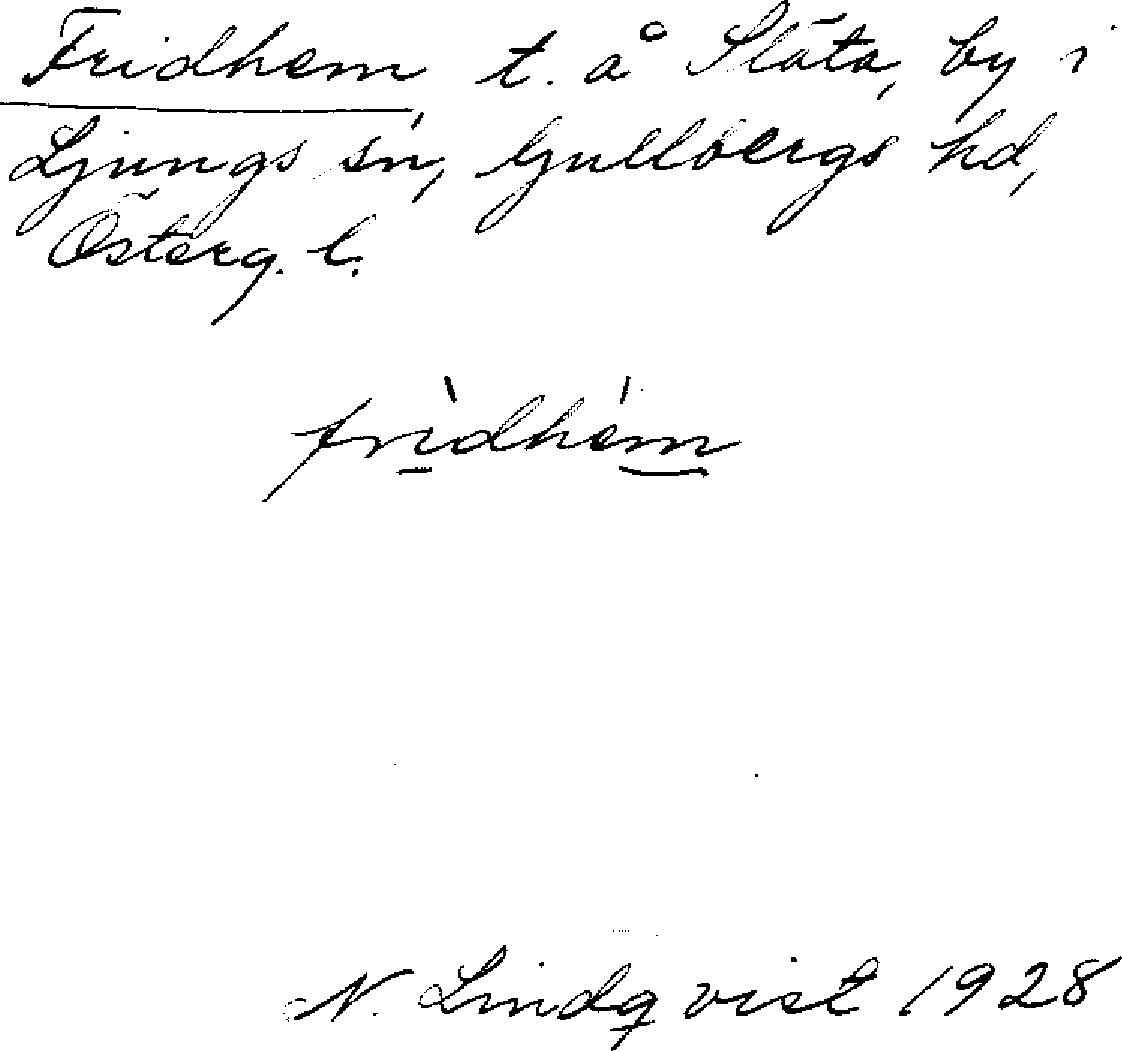 Fridhem, t. å Slätta, by i
Ljungs sn, Gullbergs hd,
Österg. l.
fri̱dhem
N. Lindqvist 1928